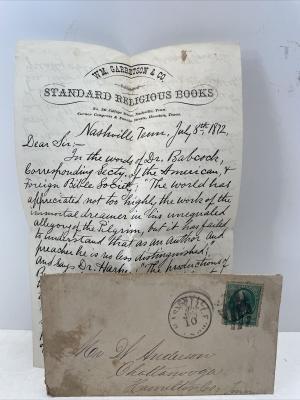 WM. GARRETSON & CO.
STANDARD RELIGIOUS BOOKS
No. 36 College Street, Nashville, Tenn.
Corner Congress & Houston, Texas.
Nashville Tenn, July 3rd, 1872,
Dear Sir:-
In the words of Dr. Babcock,
Corresponding Secty, of the American, &
Foreign Bible Society, "The world has
appreciated not too highly, the work of the
immortal dreamer in his unequaled
allegory of the Pilgrim, but it has failed
to understand that as an Author and
preacher he is no less distinguished,"
and says Dr. "The productions of
NASHVILLE TENN
JUL
10
W Anderson
Chattanooga
Hamilton Co. Tenn